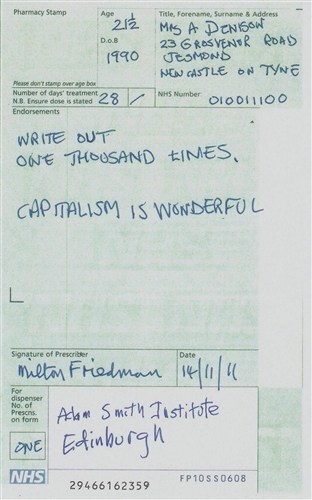 Pharmacy Stamp
Age
21½
D.o.B
1990
Title, Forename, Surname & Address
MRS A DENISON
23 GROSVENOR ROAD
JESMOND
NEWCASTLE ON TYNE
Please don't stamp over age box
Number of days' treatment
N.B. Ensure dose is stated
28
NHS Number
010011100
Endorsements
WRITE OUT
ONE THOUSAND TIMES.
CAPITALISM IS WONDERFUL
Signature of Prescriber
Milton Friedman
Date
14/11/11
For
dispenser
No. of
Prescns.
on form
ONE
Adam Smith Institute
Edinburgh
NHS
29466162359
FP10SS0608